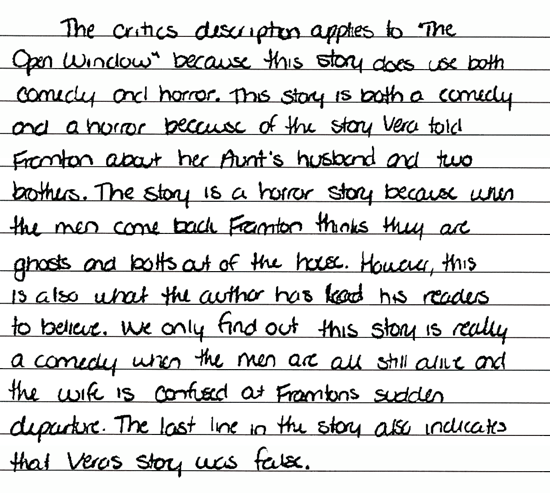 The critics description applies to "The
Open Window" because this story does use both
comedy and horror. This story is both a comedy
and a horror because of the story Vera told
Framton about her Aunt's husband and two
brothers. The story is a horror story because when
the men come back Framton thinks they are
ghosts and bolts out of the house. However, this
is also what the author has lead his readers
to believe. We only find out this story is really
a comedy when the men are all still alive and
the wife is confused at Framtons sudden
departure. The last line in the story also indicates
that Veras story was false.